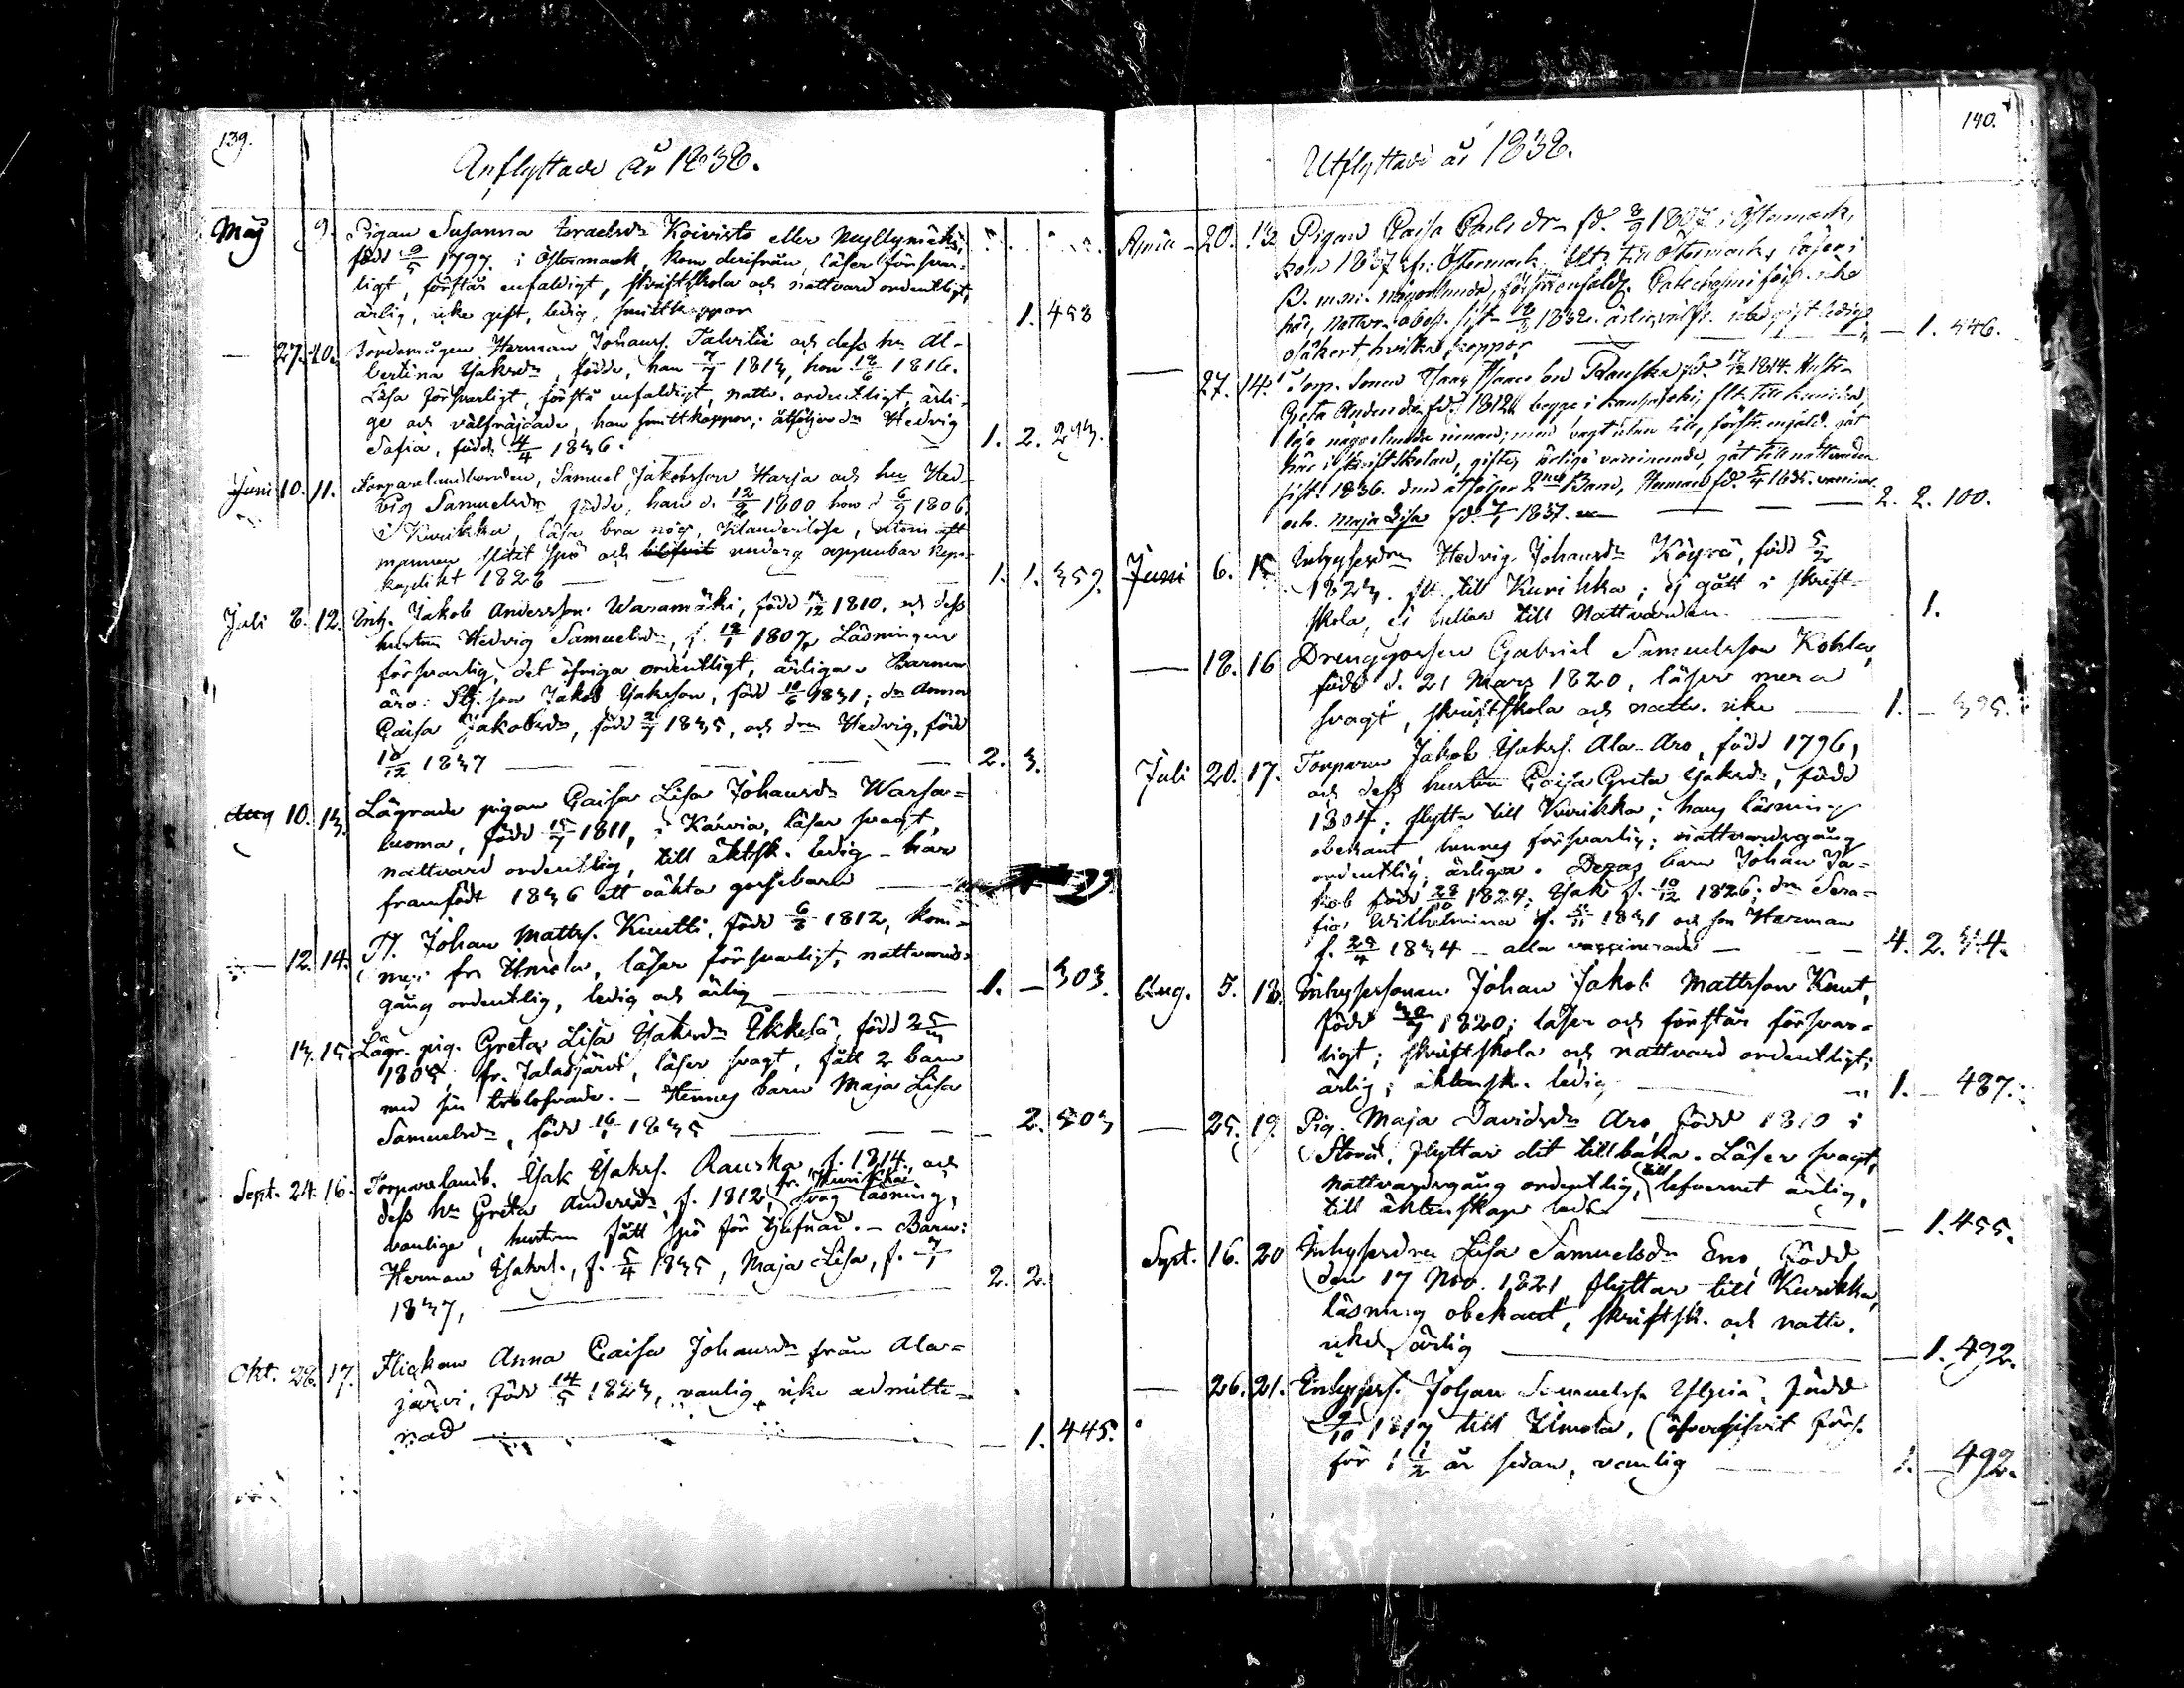 139.
Anflyttade år 1838.
Maj 9. Pigan Susanna Israelsdr Koivisto eller Myllymäki,
född 9/5 1797 i Östermark, kom derifrån, läser försvar-
ligt, förstår enfaldigt, skriftskola och nattvard ordentligt,
ärlig, icke gift, ledig, smittkoppor 1. 453
— 27. 10. Herman Johanss. Talvitie och dess hu Al-
bertina Isaksdr, födde, han 7/7 1813, hon 18/6 1816.
Läsa försvarligt, förstå enfaldigt, nattv. ordentligt, ärli-
ge och välfräjdade, han smittkoppor; åtföljer dr Hedvig
Sofia, född 4/4 1836. 1. 2. 293.
Juni 10. 11. Samuel Jakobsson Harja och hu Hed-
vig Samuelsdr, födde, han d. 12/2 1800 hon d 6/9 1806
i Kurikka, läsa bra nog, klanderlöse, utom att
mannen slitit spö och undergå uppenbar kyrko-
plikt 1828 1. 1. 359.
Juli 8. 12. Inh. Jakob Andersson Waramäki, född 1810. och dess
hustru Hedvig Samuelsdr, f. 18/1 1807, Läsningen
försvarlig, det öfriga ordentligt, ärliga. Barnen
äro: son Jakob Isaksson, född 10/6 1831; dr Anna
Caisa Jakobsdr, född 1835, och dn Hedvig, född
10/12 1837 2. 3.
Aug 10. 13. Lägrade pigan Caisa Lisa Johansdr Warsa-
luoma, född 15/7 1811, i Karvia, läser svagt,
nattvard ordentlig, till äktsk. ledig - har
framfödt 1836 ett oäkta gossebarn
12. 14. Johan Matts. Knutti, född 6/8 1812, kom-
men fr Ilmola, läser försvarligt, nattvards-
gång ordentlig, ledig och ärlig 1. — 303.
13. 15. Lägr. pig. Greta Lisa Isaksdr Ikkelä, född
1805, fr. Jalasjärvi, läser svagt, fått 2 barn
med sin trolofvade. — Hennes barn Maja Lisa
Samuelsdr, född 16/1 1835 2. 503
Sept. 24. 16. Isak Isaks. Rauska, f. 1814, och
fr. Kurikka
dess hu Greta Andersdr, f. 1812, svag läsning,
vanliga, hustrun fått spö för tjufnad. — Barn:
Herman Isaks., f. 5/4 1835, Maja Lisa, f. 7/1
1837, 2. 2.
Okt. 28. 17. Flickan Anna Caisa Johansdr från Ala-
järvi, född 14/5 1823, vanlig, icke admitte-
rad — 1. 445.
140.
Utflyttade år 1838.
April 20. 13 Pigan Caisa Carlsdr fd. 8/9 1807 i Östermark,
kom 1837 fr. Östermark, till Östermark, läser i
B. m.m. någorlunda, förstår enfaldigt.
1832. icke gift ledig
osäkert hvilka koppor — 1. 546.
— 27. 14. Torp. sonen Isaac Isacsson Rauska fd. 17/12 1814. Hustr.
Greta Andersdr fd. 1812 begge i flt. till Kurikka,
läsa någorlunda innan; men svagt utan till, förstår enfald. gåt
här i skriftskolan, gifte, ärlige vaccinerade, gåt till nattvarden
sist 1836. dem åtföljer 2ne Barn, Herman fd. 5/4 1835. vaccinr.
och Maja Lisa fd. 7/1 1837. 2. 2. 100.
Juni 6. 15 Inhysesdrn Hedvig Johansdr Köyrä, född 5/2
1823. fl. till Kurikka; ej gått i skrift-
skola, ej heller till Nattvarden. 1.
— 18. 16 Drenggossen Gabriel Samuelsson Kohla,
född d. 21 Mars 1820, läser mera
svagt, skriftskola och nattv. icke 1. — 395.
Juli 20. 17. Torparen Jakob Isaks. Ala-Aro, född 1796,
och dess hustru Caisa Greta Isaksdr, född
1804; flytta till Kurikka; hans läsning
obekant, hennes försvarlig; nattvardsgång
ordentlig, ärliga. Deras barn Johan Ja-
kob född 28/10 1824; Isak f. 10/12 1826; dn Sera-
fia Wilhelmina f. 1831 och son Herman
f. 29/4 1834 - alla vaccinerade 4. 2. 34.
Aug. 5. 18. Inhysessonen Johan Jakob Mattsson Knut,
född 1820; läser och förstår försvar-
ligt; skriftskola och nattvard ordentligt;
ärlig; äktensk. ledig 1. — 487.
— 25. 19. Pig. Maja Davidsdr Aro, född 1810 i
Storå, flyttar dit tillbaka. Läser svagt,
nattvardsgång ordentlig, till lefvernet ärlig,
till äktenskap ledig — 1. 455.
Sept. 16. 20 Inhysesdrn Lisa Samuelsdr Eno, född
den 17 Nov. 1821, flyttar till Kurikka,
läsning obekant, skriftsk. och nattv.
icke, ärlig — 1. 492.
— 26. 21. Inhyses. Johan Samuelss. född
9/10 1817 till Ilmola, (öfvergifvit förs.
för 1 1/2 år sedan, vanlig 1. — 492.